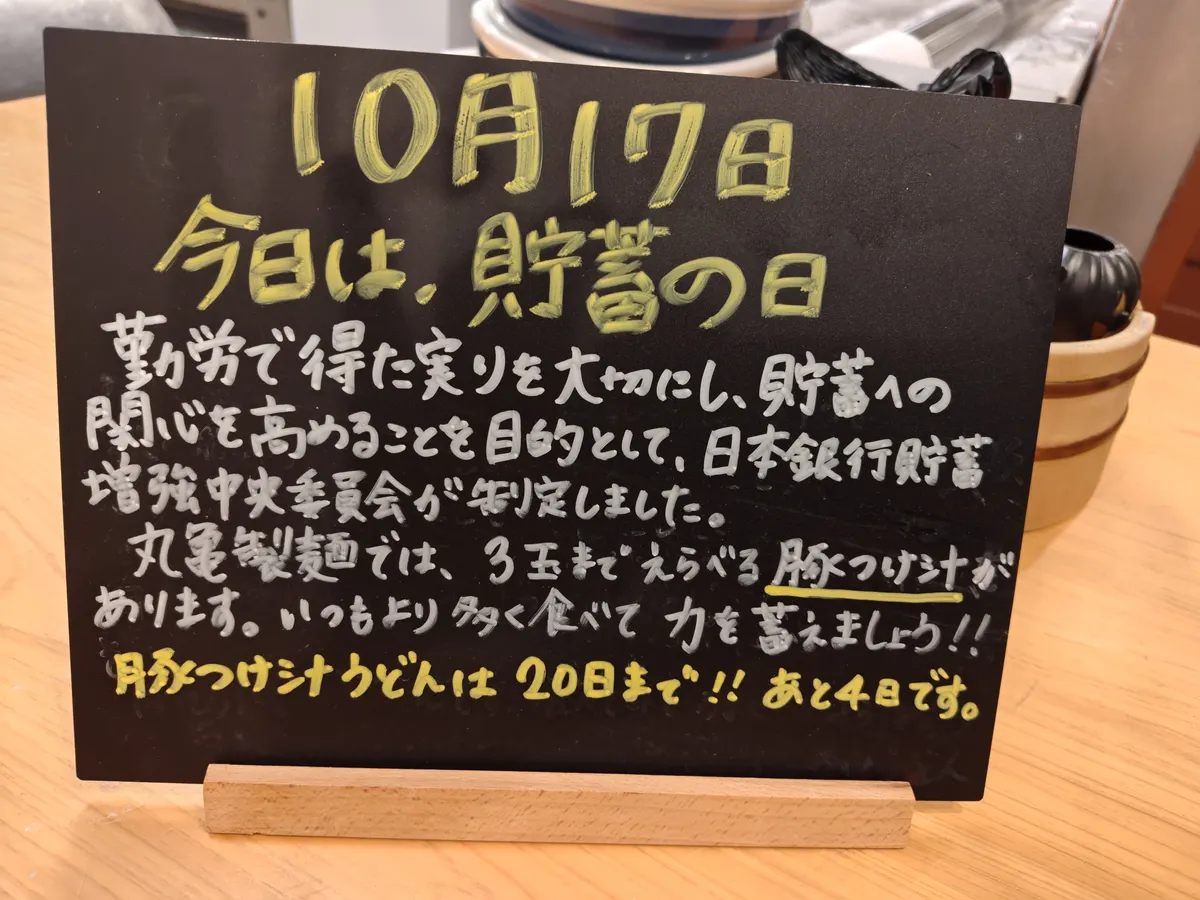 10月17日
今日は、貯蓄の日
勤労で得た実りを大切にし、貯蓄への
関心を高めることを目的として、日本銀行貯蓄
増強中央委員会が制定しました。
丸亀製麺では、3玉までえらべる豚つけ汁が
あります。いつもより多く食べて力を蓄えましょう!!
豚つけ汁うどんは20日まで!!あと4日です。